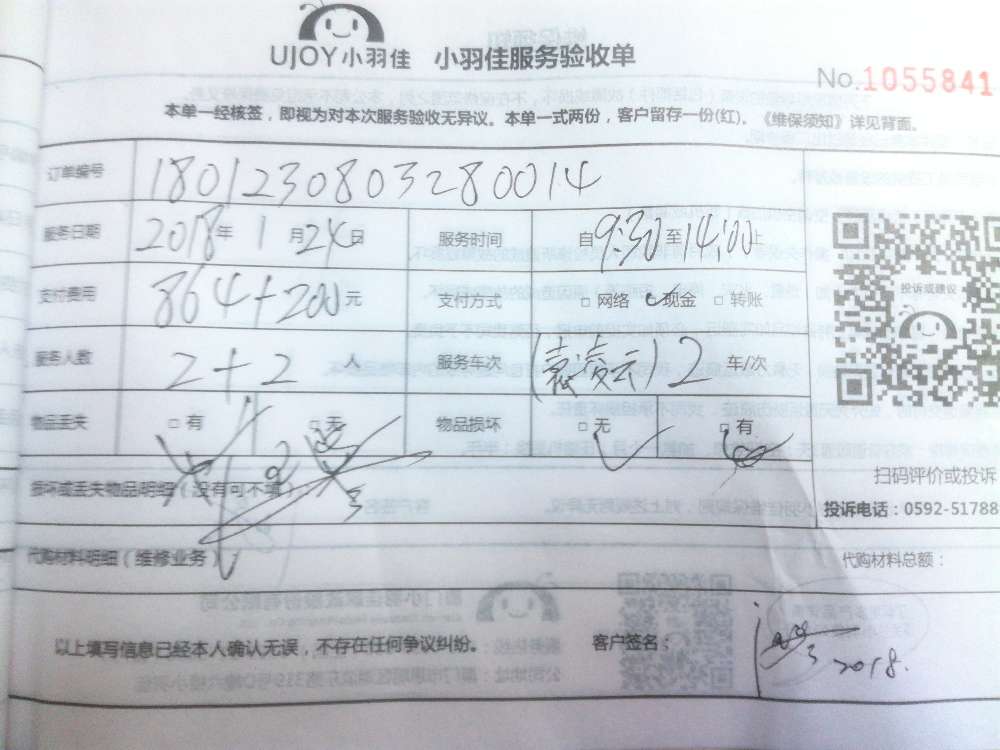 UJOY小羽佳 小羽佳服务验收单
No.1055841
本单一经核签，即视为对本次服务验收无异议。本单一式两份，客户留存一份(红)。《维保须知》详见背面。
订单编号 1801230803280014
服务日期 2018年 1月 24日 服务时间 自 9:30 至 14:00 止
支付费用 864+200 元 支付方式 □网络 □现金 □转账
服务人数 2+2 人 服务车次 (袁凌云) 2 车/次
物品丢失 □有 □无 物品损坏 □无 □有
投诉或建议
扫码评价或投诉
损坏或丢失物品明细（没有可不填）：
投诉电话：0592-51788
代购材料明细（维修业务）：
代购材料总额：
以上填写信息已经本人确认无误，不存在任何争议纠纷。 客户签名：
2018.